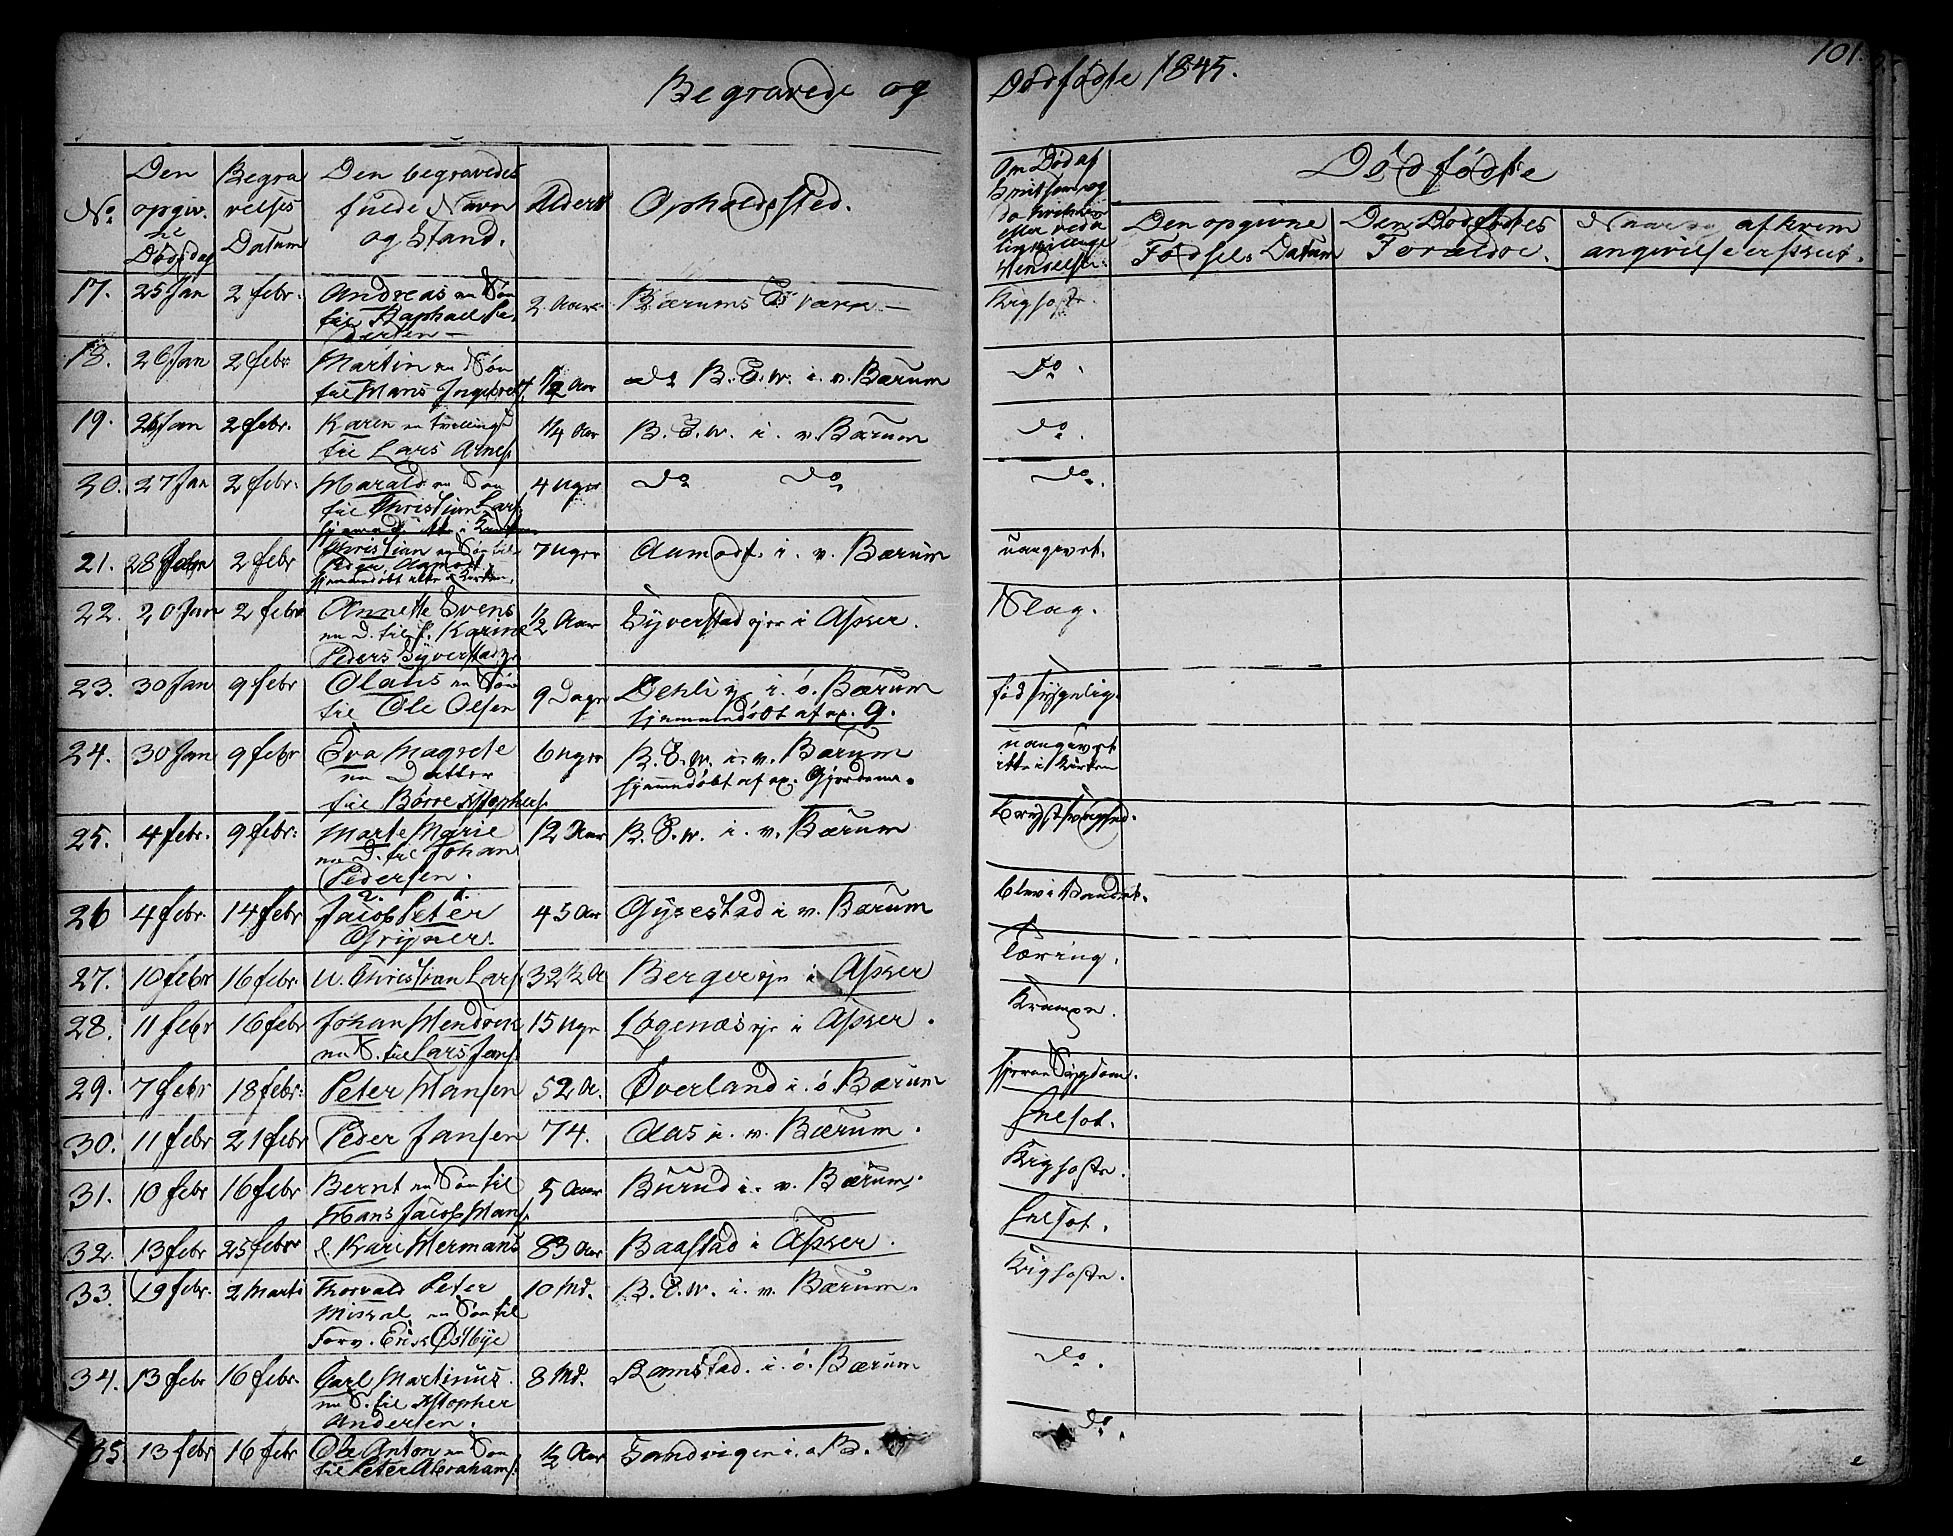 Begravede og Dødfødte 1845.
101.
No.
Den opgivne Dødsdag
Begravelses Datum
Den begravedes fulde Navn og Stand.
Alder
Opholdssted.
Om Død af
Dødfødte
Den opgivne Fødsels Datum
Den Dødfødtes Forældre.
af hvem angivelse er skeet.
17. 25 Jan 2 febr. Andreas en Søn 2 Aar Bærums Værk — Kighoste.
til Raphael Pe-
dersen —
18. 26 Jan 2 febr Martin en Søn 1/2 Aar do B. V. i. v. Bærum do.
til Hans Ingebrets.
19. 26 Jan 2 febr. Karen en Tvilling 1/4 Aar i. v. Bærum do.
til Lars Arnes.
20. 27 Jan 2 febr. Harald en Søn 4 Uger do do do.
til Christian Lars.
21. 28 Jan 2 febr Christian en Søn til 7 Uger Aamodt i. v. Bærum uangivet.
Peder Aamodt
hjemmedøbt ikke i Kirken.
22. 20 Jan 2 febr Annette Svens 1/2 Aar Syverstad eje i Asker. Slag.
en D. til f. Karine
Peders Syverstadeje
23. 30 Jan 9 febr Olaus en Søn 9 Dage Dehli eje i. ø. Bærum født sygelig.
til Ole Olsen hjemmedøbt af 9.
24. 30 Jan 9 febr Eva Magrete 6 Uger i. v. Bærum uangivet
en Datter hjemmedøbt af ikke i Kirken
til Børre Kstophers.
25. 4 febr. 9 febr: Marte Marie 12 Aar i. v. Bærum Brystsvaghed.
en D. til Johan
Pedersen.
26 4 febr. 14 febr Jacob Peter 45 Aar i v. Bærum blev i Vandet.
2. 1.
Grijner.
27. 10 febr 16 febr. U. Christian Lars. 32 1/2 A Berger eje i Asker Tæring.
28. 11 febr 16 febr Johan Hendrik 15 Uger Løgenæs eje i Asker. Krampe.
en S. til Lars Jans.
29. 7 febr 18 febr: Peter Hansen 52 A. Øverland i. ø. Bærum
30. 11 febr 21 febr Peder Jansen 74. Aas i. v. Bærum.
31. 10 febr 16 febr Bernt en Søn til 5 Aar Burud i. v. Bærum. Kighoste.
Hans Jacob Hans.
32. 13 febr 25 febr Kari Hermans 83 Aar Baastad i Asker.
33. 19 febr. 2 Marts Thorvald Peter 10 Md. i. v. Bærum. Kighoste.
en Søn til
Forv. Erik Østbye
34. 13 febr 16 febr. Carl Martinus 8 Md. Ramstad. i. ø. Bærum do.
en S. til Kstopher
Andersen.
35. 13 febr 16 febr Ole Anton en Søn 1/2 Aar Sandvigen i. ø B. do.
til Peter Abrahams.